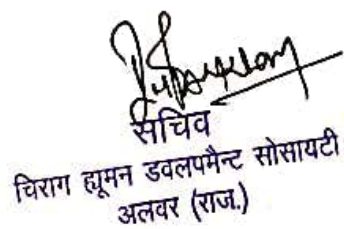 सचिव
चिराग ह्यूमन डवलपमैन्ट सोसायटी
अलवर (राज.)